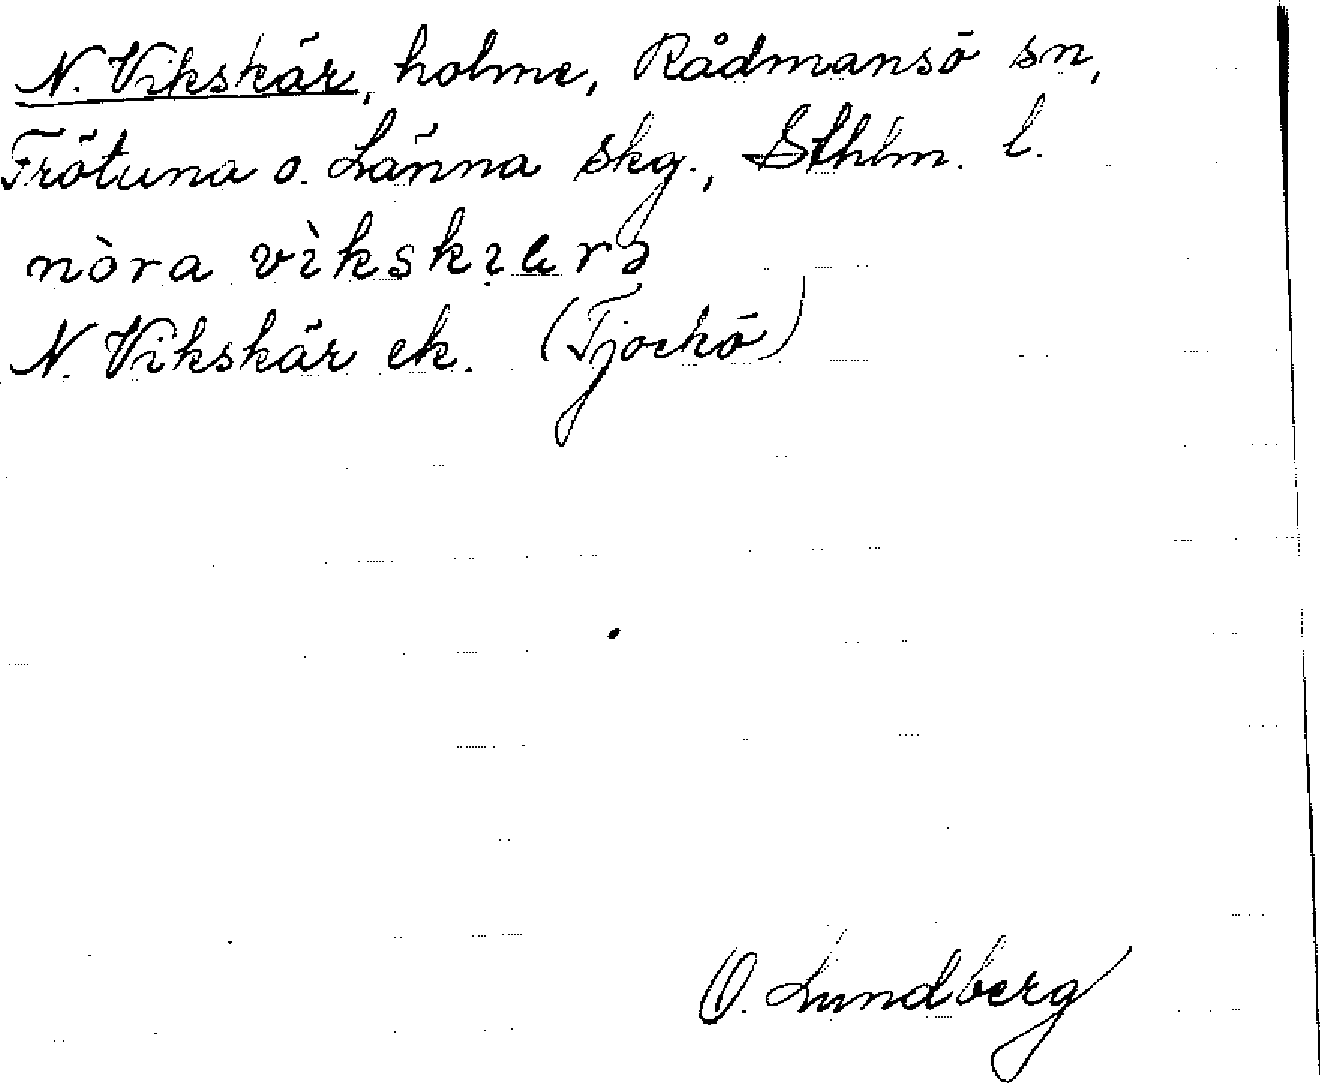 N. Vikskär, holme, Rådmansö sn,
Frötuna o. Länna skg., Sthlm. l.
nòra vìkskær
N. Vikskär ek. (Tjockö)
O. Lundberg